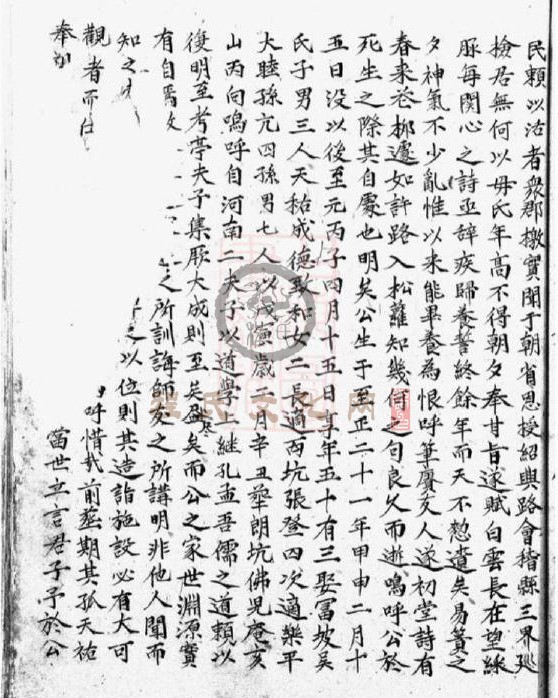 民賴以活者衆郡檄實聞于朝省恩授紹興路會稽縣三界廵
撿君無何以母氏年高不得朝夕奉甘旨遂賦白雲長在望綵
服每関心之詩亟辭疾歸養誓終餘年而天不慭遺矣易簀之
夕神氣不少亂惟以来能畢養為恨呼筆賡友人遂初堂詩有
春来花柳還如許路入松蘿知幾何之句良久而逝嗚呼公於
死生之際其自處也明矣公生于至正二十一年甲申二月十
五日没以後至元丙子四月十五日享年五十有三娶冨坡吳
氏子男三人天祐成德致和女二長適丙坑張登四次適樂平
大睦孫亢四孫男七人以 歲 月辛丑塟朗坑佛兒庵亥
山丙向嗚呼自河南二夫子以道學上継孔孟吾儒之道賴以
復明至考亭夫子集厥大成則至矣盡矣而公之家世淵源實
有自焉 之所訓誨師友之所講明非他人聞而
知之 之以位則其造詣施設必有大可
觀者而 呼惜哉前塟期其孤天祐
奉 當世立言君子予於公
程氏文化网